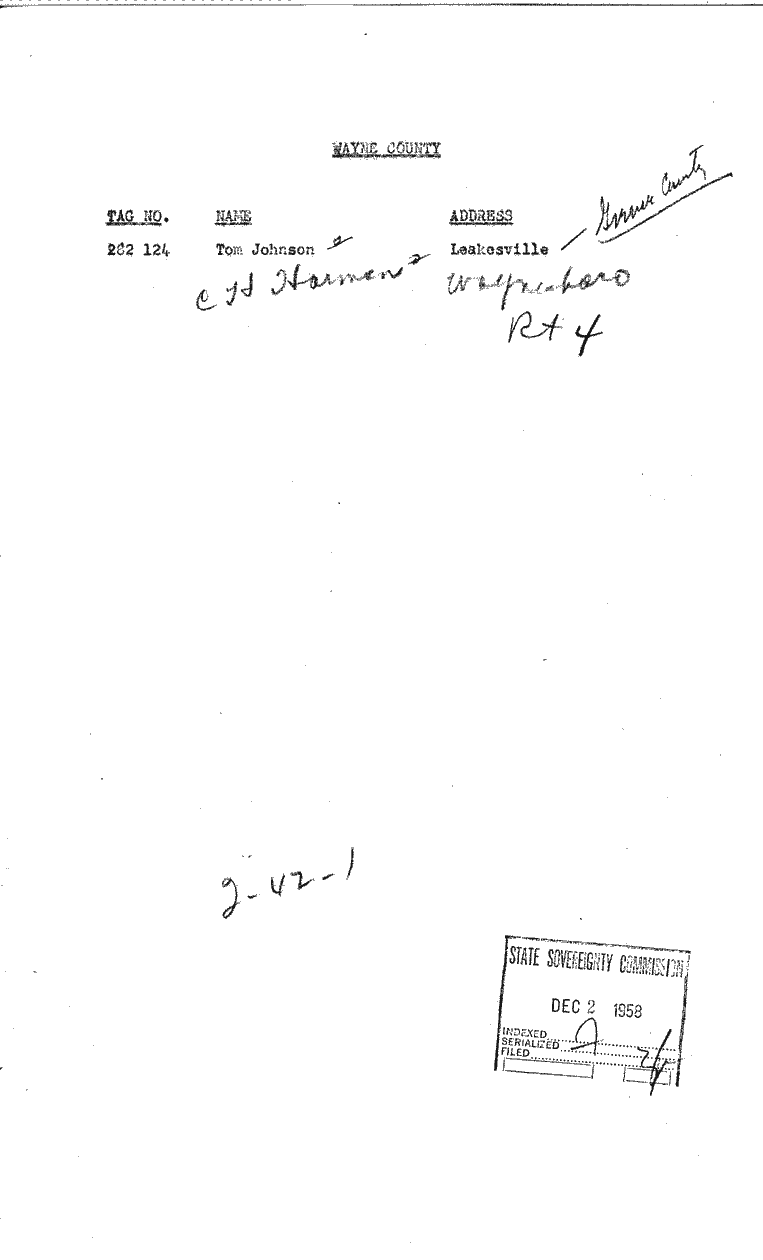 WAYNE COUNTY
TAG NO. NAME ADDRESS
282 124 Tom Johnson Leakesville County
C H Harmon Waynesboro
Rt 4
2-42-1
STATE SOVEREIGNTY COMMISSION
DEC 2 1958
INDEXED
SERIALIZED
FILED